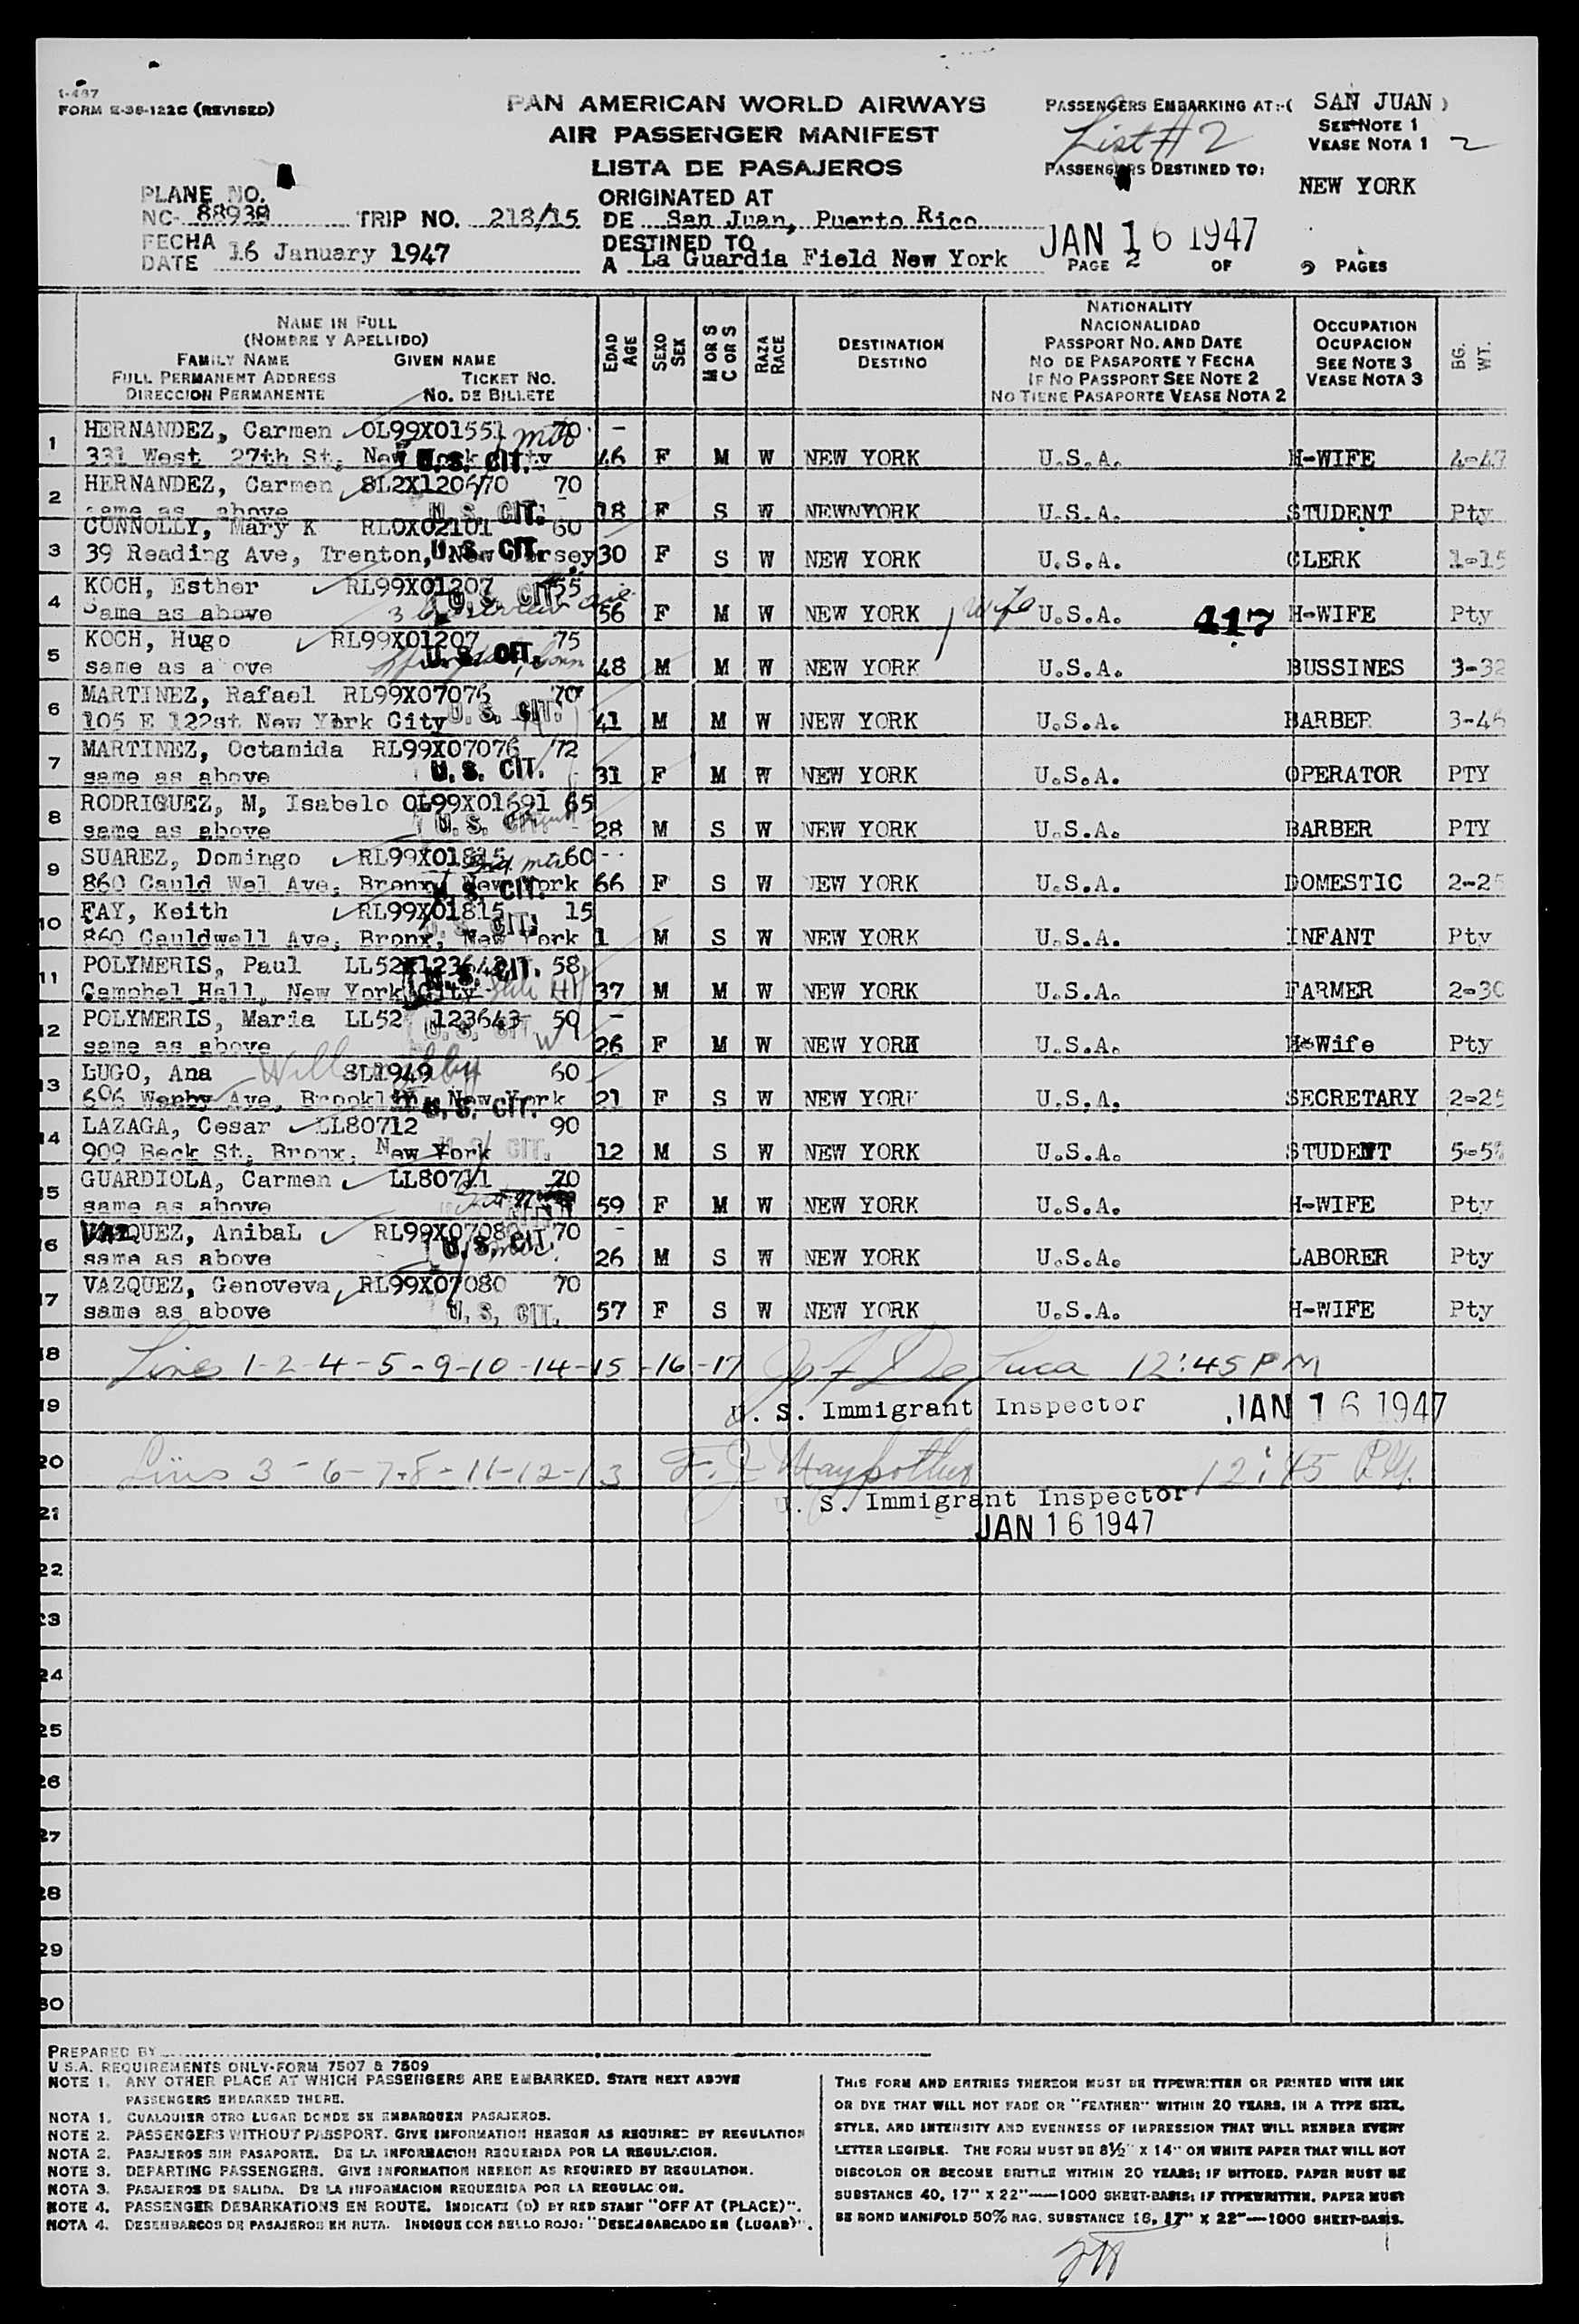 I-487
FORM E-36-122C (REVISED)
PAN AMERICAN WORLD AIRWAYS
AIR PASSENGER MANIFEST
LISTA DE PASAJEROS
PASSENGERS EMBARKING AT:-( SAN JUAN )
SEE NOTE 1
VEASE NOTA 1 2
List # 2
PASSENGERS DESTINED TO:
NEW YORK
PLANE NO.
NC- TRIP NO. 218/15
FECHA
DATE 16 January 1947
ORIGINATED AT
DE San Juan, Puerto Rico
DESTINED TO
A La Guardia Field New York
JAN 16 1947
PAGE 2 OF 2 PAGES
NAME IN FULL
(NOMBRE Y APELLIDO)
FAMILY NAME GIVEN NAME
FULL PERMANENT ADDRESS TICKET NO.
DIRECCION PERMANENTE NO. DE BILLETE
EDAD AGE
SEXO SEX
M OR S C OR S
RAZA RACE
DESTINATION
DESTINO
NATIONALITY
NACIONALIDAD
PASSPORT NO. AND DATE
NO DE PASAPORTE Y FECHA
IF NO PASSPORT SEE NOTE 2
NO TIENE PASAPORTE VEASE NOTA 2
OCCUPATION
OCUPACION
SEE NOTE 3
VEASE NOTA 3
BG. WT.
1 HERNANDEZ, Carmen OL99X01551 70
331 West 27th St, New York City U.S. CIT. 46 F M W NEW YORK U.S.A. H-WIFE 4-47
2 HERNANDEZ, Carmen 8L2X120670 70
same as above U.S. CIT. 18 F S W NEWNYORK U.S.A. STUDENT Pty
3 CONNOLLY, Mary K RL0X02101 60
39 Reading Ave, Trenton, New Jersey U.S. CIT. 30 F S W NEW YORK U.S.A. CLERK 1-15
4 KOCH, Esther RL99X01207 55
Same as above U.S. CIT. 56 F M W NEW YORK wife U.S.A. 417 H-WIFE Pty
5 KOCH, Hugo RL99X01207 75
same as above U.S. CIT. 48 M M W NEW YORK U.S.A. BUSSINES 3-32
6 MARTINEZ, Rafael RL99X07076 70
105 E 122st New York City U.S. CIT. 41 M M W NEW YORK U.S.A. BARBER 3-46
7 MARTINEZ, Octamida RL99X07076 72
same as above U.S. CIT. 31 F M W NEW YORK U.S.A. OPERATOR PTY
8 RODRIGUEZ, M, Isabelo OL99X01691 65
same as above U.S. CIT. 28 M S W NEW YORK U.S.A. BARBER PTY
9 SUAREZ, Domingo RL99X01815 60
860 Cauld Wel Ave, Bronx, New York U.S. CIT. 66 F S W NEW YORK U.S.A. DOMESTIC 2-25
10 FAY, Keith RL99X01815 15
860 Cauldwell Ave, Bronx, New York U.S. CIT. 1 M S W NEW YORK U.S.A. INFANT Pty
11 POLYMERIS, Paul 58
Camphel Hall, New York City U.S. CIT. 37 M M W NEW YORK U.S.A. FARMER 2-30
12 POLYMERIS, Maria LL52 123643 50
same as above U.S. CIT. 26 F M W NEW YORK U.S.A. H-Wife Pty
13 LUGO, Ana 60
Ave, Brooklyn, New York U.S. CIT. 21 F S W NEW YORK U.S.A. SECRETARY 2-25
14 LAZAGA, Cesar LL80712 90
909 Beck St, Bronx, New York U.S. CIT. 12 M S W NEW YORK U.S.A. STUDENT
15 GUARDIOLA, Carmen LL80711 70
same as above 59 F M W NEW YORK U.S.A. H-WIFE Pty
16 VAZQUEZ, AnibaL RL99X07080 70
same as above U.S. CIT. 26 M S W NEW YORK U.S.A. LABORER Pty
17 VAZQUEZ, Genoveva RL99X07080 70
same as above U.S. CIT. 57 F S W NEW YORK U.S.A. H-WIFE Pty
18 Lines 1-2-4-5-9-10-14-15-16-17 12:45 PM
19 U. S. Immigrant Inspector JAN 16 1947
20 Lines 3-6-7-8-11-12-13 12:45 P.M.
U. S. Immigrant Inspector
21 JAN 16 1947
22
23
24
25
26
27
28
29
30
PREPARED BY
U.S.A. REQUIREMENTS ONLY-FORM 7507 & 7509
NOTE 1. ANY OTHER PLACE AT WHICH PASSENGERS ARE EMBARKED. STATE NEXT ABOVE
PASSENGERS EMBARKED THERE.
NOTA 1. CUALQUIER OTRO LUGAR DONDE SE EMBARQUEN PASAJEROS.
NOTE 2. PASSENGERS WITHOUT PASSPORT. GIVE INFORMATION HEREON AS REQUIRED BY REGULATION
NOTA 2. PASAJEROS SIN PASAPORTE. DE LA INFORMACION REQUERIDA POR LA REGULACION.
NOTE 3. DEPARTING PASSENGERS. GIVE INFORMATION HEREON AS REQUIRED BY REGULATION.
NOTA 3. PASAJEROS DE SALIDA. DE LA INFORMACION REQUERIDA POR LA REGULACION.
NOTE 4. PASSENGER DEBARKATIONS EN ROUTE. INDICATE (D) BY RED STAMP "OFF AT (PLACE)".
NOTA 4. DESEMBARCOS DE PASAJEROS EN RUTA. INDIQUE CON SELLO ROJO: "DESEMBARCADO EN (LUGAR)".
THIS FORM AND ENTRIES THEREON MUST BE TYPEWRITTEN OR PRINTED WITH INK
OR DYE THAT WILL NOT FADE OR "FEATHER" WITHIN 20 YEARS, IN A TYPE SIZE,
STYLE, AND INTENSITY AND EVENNESS OF IMPRESSION THAT WILL RENDER EVERY
LETTER LEGIBLE. THE FORM MUST BE 8½" X 14" ON WHITE PAPER THAT WILL NOT
DISCOLOR OR BECOME BRITTLE WITHIN 20 YEARS; IF DITTOED, PAPER MUST BE
SUBSTANCE 40, 17" X 22"—1000 SHEET-BASIS; IF TYPEWRITTEN, PAPER MUST
BE BOND MANIFOLD 50% RAG, SUBSTANCE 16, 17" X 22"—1000 SHEET-BASIS.